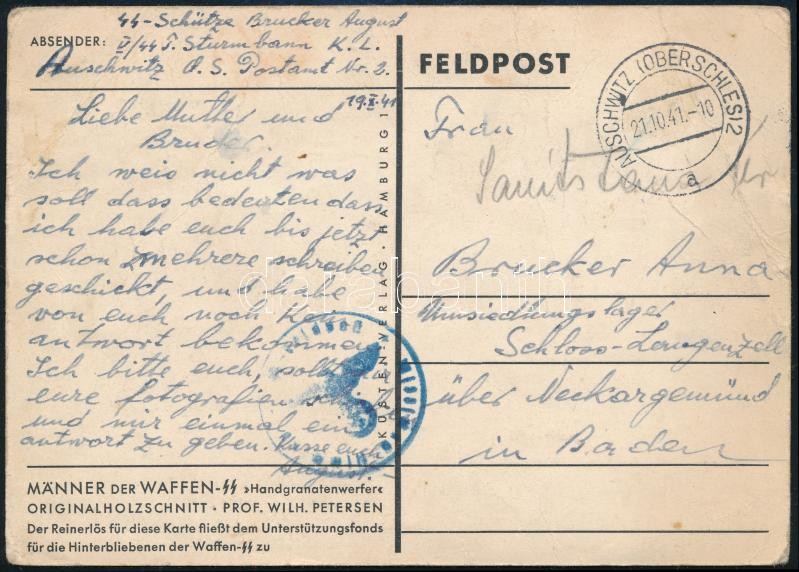 ABSENDER: SS-Schütze Brucker August
V/SS T. Sturmbann K. L.
Auschwitz O. S. Postamt Nr. 2.
19.X.41
Liebe Mutter und
Bruder.
Ich weis nicht was
soll dass bedeuten dass
ich habe euch bis jetzt
schon mehrere schreiben
geschickt, und habe
von euch noch kein
antwort bekommen
Ich bitte euch, sollt
eure fotografien
und mir einmal ein
antwort zu geben. Küsse euch
August.
KÜSTEN-VERLAG · HAMBURG 1
MÄNNER DER WAFFEN-SS »Handgranatenwerfer«
ORIGINALHOLZSCHNITT · PROF. WILH. PETERSEN
Der Reinerlös für diese Karte fließt dem Unterstützungsfonds
für die Hinterbliebenen der Waffen-SS zu
FELDPOST
AUSCHWITZ (OBERSCHLES) 2
21.10.41.-10
a
Frau
Brucker Anna
Umsiedlungslager
Schloss-Langenzell
über Neckargemünd
in Baden
darabanth